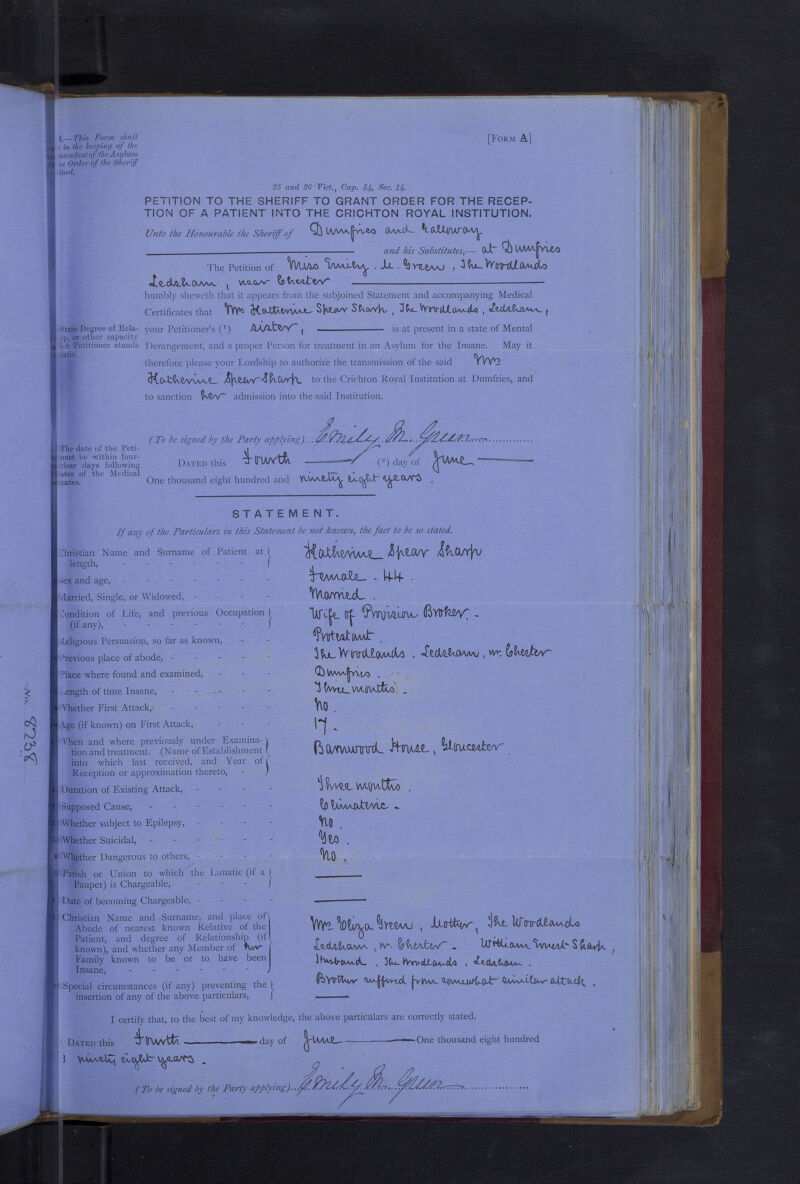 I.—This Form shall
in the keeping of the
ntendent of the Asylum
he Order of the Sheriff
ined.
[FORM A]
25 and 26 Vict., Cap. 54, Sec. 14.
PETITION TO THE SHERIFF TO GRANT ORDER FOR THE RECEP-
TION OF A PATIENT INTO THE CRICHTON ROYAL INSTITUTION.
Unto the Honourable the Sheriff of Dumfries and Galloway
and his Substitutes,— at Dumfries
The Petition of Miss Emily . M . Green , The Woodlands
Ledsham , near Chester
humbly sheweth that it appears from the subjoined Statement and accompanying Medical
Certificates that Mrs Katherine Spear Sharp , The Woodlands , Ledsham ,
State Degree of Rela-
ip, or other capacity
ich Petitioner stands
natic.
your Petitioner's (1) Sister , is at present in a state of Mental
Derangement, and a proper Person for treatment in an Asylum for the Insane. May it
therefore please your Lordship to authorize the transmission of the said Mrs
Katherine Spear Sharp to the Crichton Royal Institution at Dumfries, and
to sanction her admission into the said Institution.
(To be signed by the Party applying)... Emily M. Green
The date of the Peti-
must be within four-
clear days following
ates of the Medical
icates.
DATED this Fourth (2) day of June
One thousand eight hundred and ninety eight years .
STATEMENT.
If any of the Particulars in this Statement be not known, the fact to be so stated.
Christian Name and Surname of Patient at
length, Katherine Spear Sharp
Sex and age, Female . 44 .
Married, Single, or Widowed, Married .
Condition of Life, and previous Occupation
(if any), Wife of Provision Broker . -
Religious Persuasion, so far as known, Protestant .
Previous place of abode, The Woodlands . Ledsham , nr. Chester
Place where found and examined, Dumfries .
Length of time Insane, Three months .
Whether First Attack, No
Age (if known) on First Attack, 17 .
When and where previously under Examina-
tion and treatment. (Name of Establishment
into which last received, and Year of
Reception or approximation thereto, Barnwood House , Gloucester .
No. 8238
Duration of Existing Attack, Three months .
Supposed Cause, Climateric -
Whether subject to Epilepsy, No .
Whether Suicidal, Yes .
Whether Dangerous to others, No .
Parish or Union to which the Lunatic (if a
Pauper) is Chargeable,
Date of becoming Chargeable,
Christian Name and Surname, and place of
Abode of nearest known Relative of the
Patient, and degree of Relationship (if
known), and whether any Member of her
Family known to be or to have been
Insane,
Mrs Eliza Green , Mother , The Woodlands
Ledsham , nr. Chester - William Ernest Sharp ,
Husband , The Woodlands , Ledsham .
Brother suffered from somewhat similar attack .
Special circumstances (if any) preventing the
insertion of any of the above particulars,
I certify that, to the best of my knowledge, the above particulars are correctly stated.
DATED this Fourth day of June One thousand eight hundred
ninety eight years .
(To be signed by the Party applying)... Emily M. Green